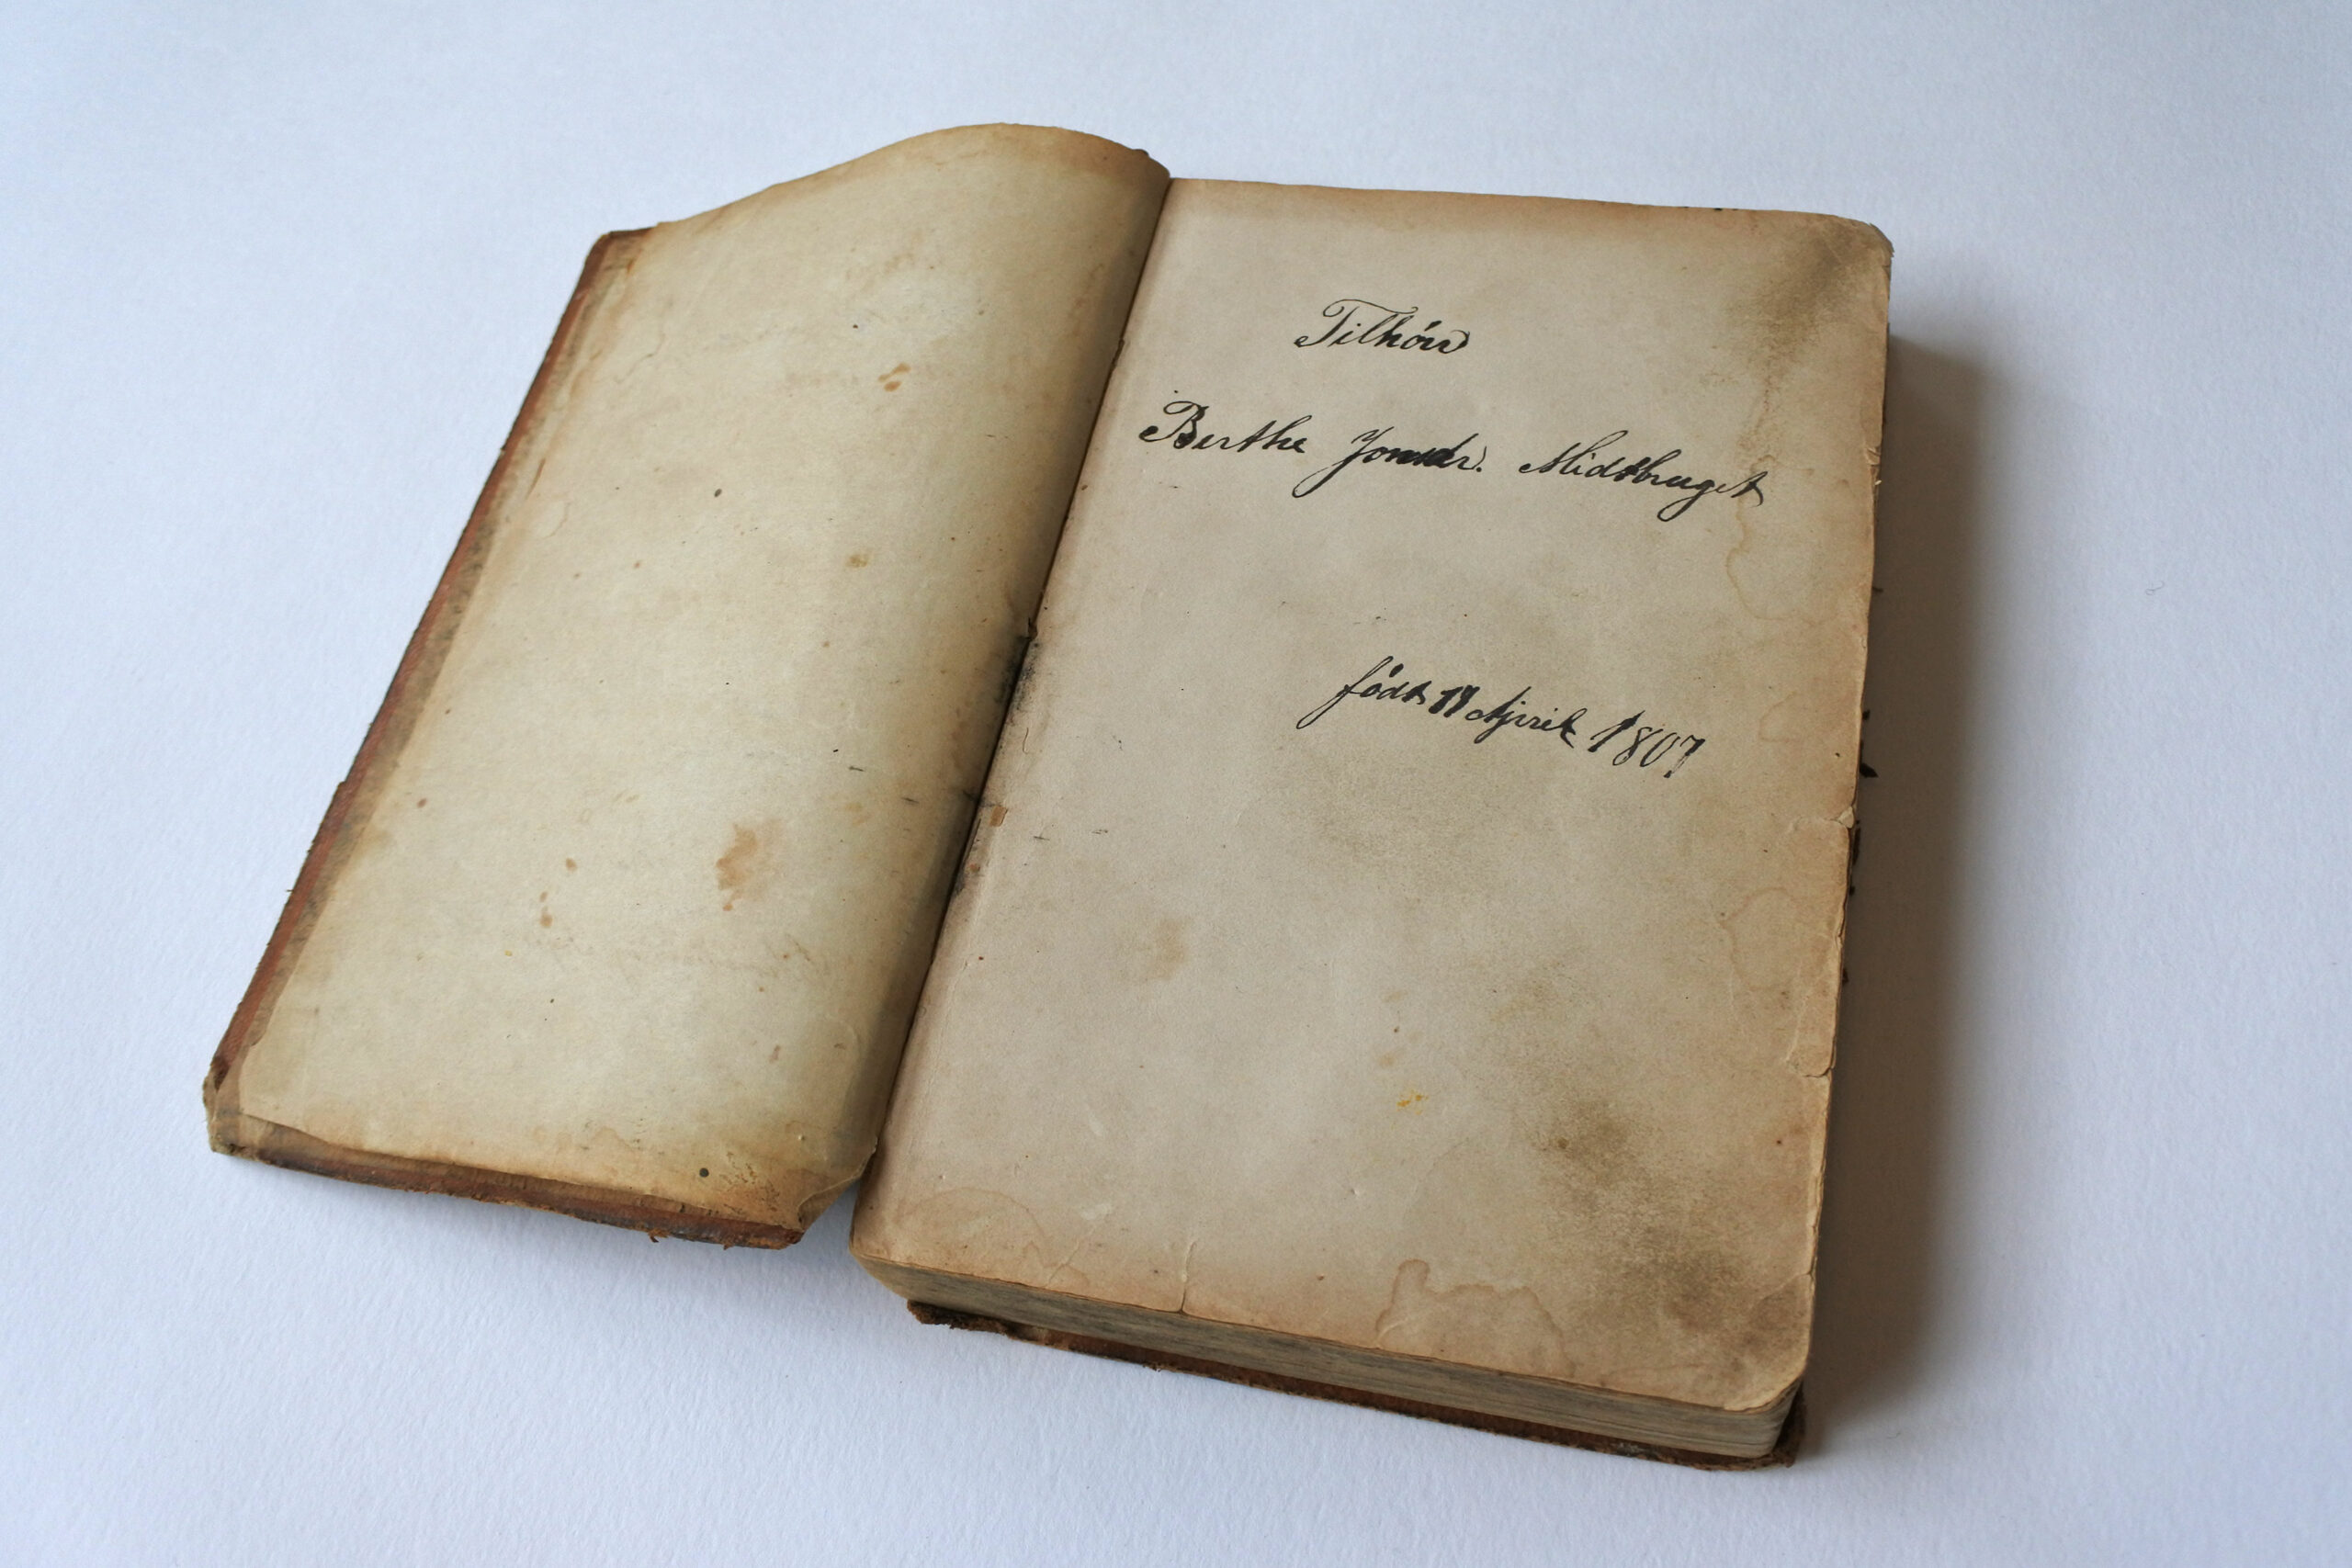 Tilhör
Berthe Jonsdr. Midtbruget
födt 19 April 1807